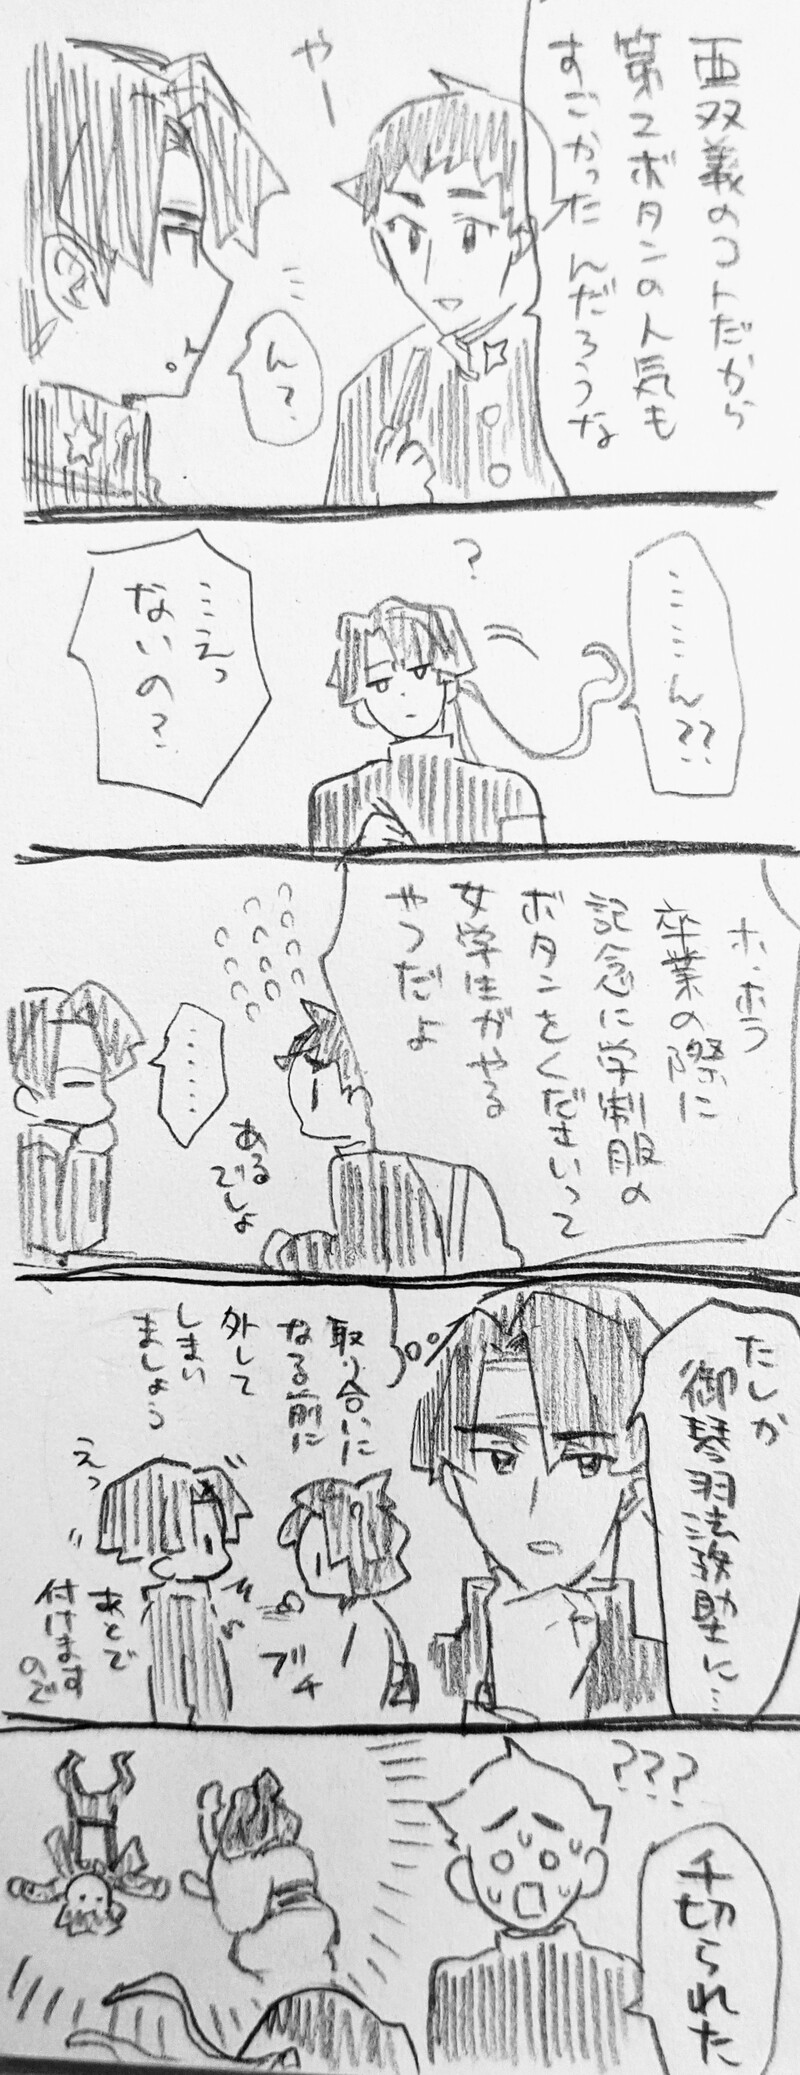 亜双義のコトだから
第2ボタンの人気も
すごかったんだろうな
やー
ん?
……ん??
?
…えっ
ないの?
ホ、ホラ
卒業の際に
記念に学制服の
ボタンをくださいって
女学生がやる
やつだよ
あるでしょ
……
たしか
御琴羽法務助士に…
取り合いに
なる前に
外して
しまい
ましょう
えっ
ブチ
あとで
付けます
ので
???
千切られた